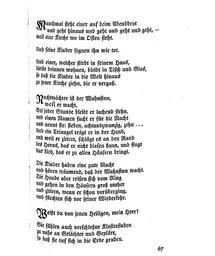 Manchmal steht einer auf beim Abendbrot
und geht hinaus und geht und geht und geht, –
weil eine Kirche wo im Osten steht.
Und seine Kinder segnen ihn wie tot.
Und einer, welcher stirbt in seinem Haus,
bleibt drinnen wohnen, bleibt in Tisch und Glas,
so daß die Kinder in die Welt hinaus
zu jener Kirche ziehn, die er vergaß.
Nachtwächter ist der Wahnsinn,
weil er wacht.
Bei jeder Stunde bleibt er lachend stehn,
und einen Namen sucht er für die Nacht
und nennt sie: sieben, achtundzwanzig, zehn . . .
Und ein Triangel trägt er in der Hand,
und weil er zittert, schlägt es an den Rand
des Horns, das er nicht blasen kann, und singt
das Lied, das er zu allen Häusern bringt.
Die Kinder haben eine gute Nacht
und hören träumend, daß der Wahnsinn wacht.
Die Hunde aber reißen sich vom Ring
und gehen in den Häusern groß umher
und zittern, wenn er schon vorüberging,
und fürchten sich vor seiner Wiederkehr.
Weißt du von jenen Heiligen, mein Herr?
Sie fühlten auch verschloßne Klosterstuben
zu nahe an Gelächter und Geplärr,
so daß sie tief sich in die Erde gruben.
67